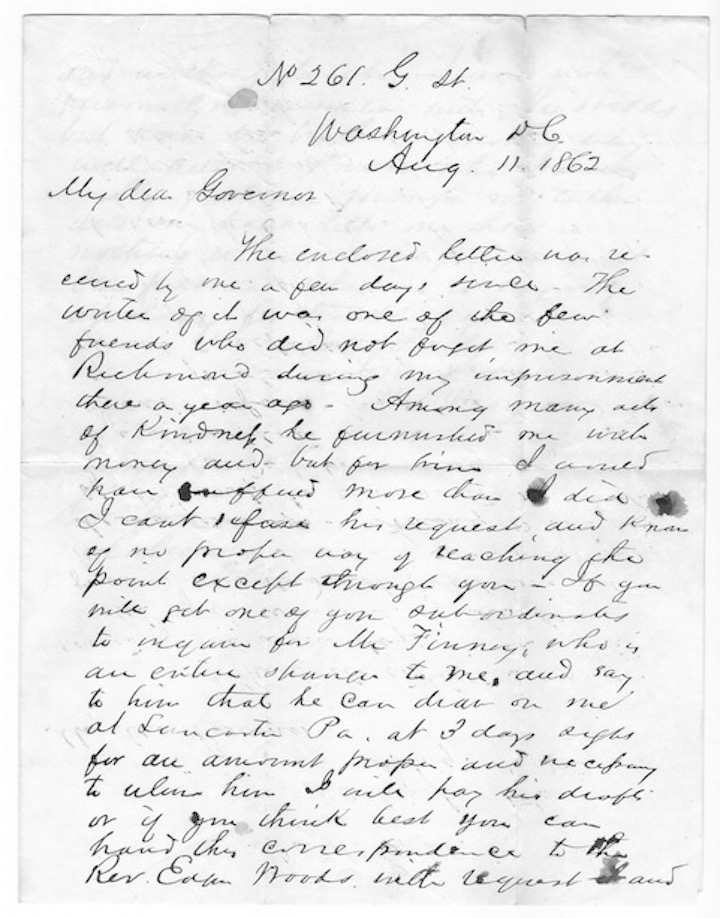 No 261. G. St.
Washington D.C.
Aug. 11. 1862
My dear Governor
The enclosed letter was re-
ceived by me a few days since - The
writer of it was one of the few
friends who did not forget me at
Richmond during my imprisonment
there a year ago - Among many acts
of Kindness he furnished me with
money and but for him I would
have suffered more than I did
I cant refuse his request and know
of no proper way of reaching the
point except through you - If you
will get one of your subordinates
to inquire for Mr Finney, who is
an entire stranger to me, and say
to him that he can draw on me
at Lancaster Pa. at 3 days sight
for an amount proper and necessary
to relieve him I will pay his draft
or if you think best you can
hand this correspondence to the
Rev. Edgar Woods with request and